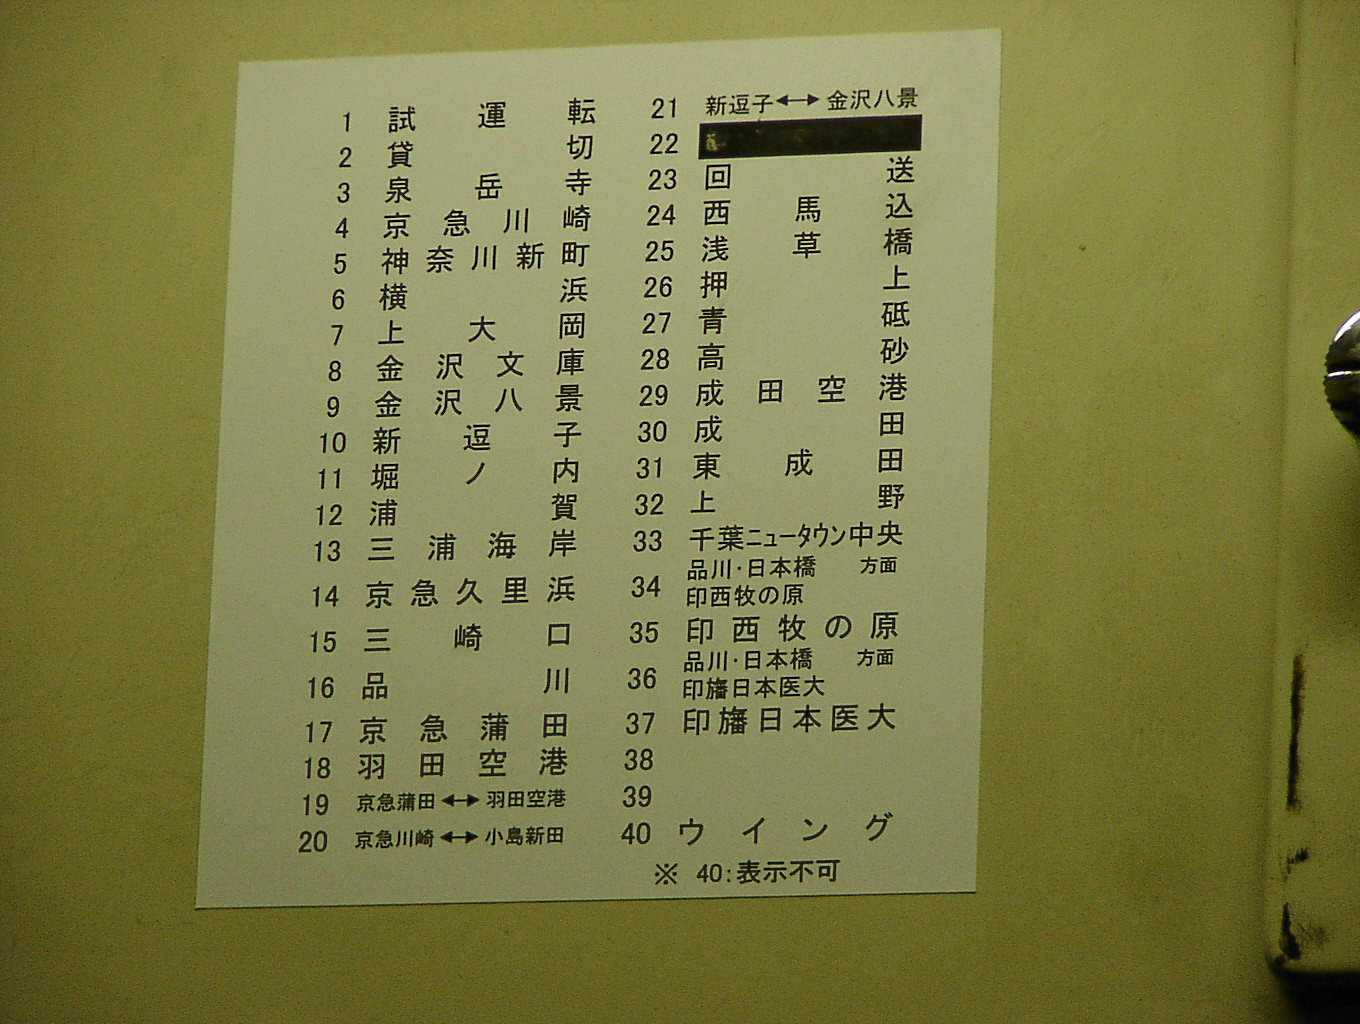 1 試運転
2 貸切
3 泉岳寺
4 京急川崎
5 神奈川新町
6 横浜
7 上大岡
8 金沢文庫
9 金沢八景
10 新逗子
11 堀ノ内
12 浦賀
13 三浦海岸
14 京急久里浜
15 三崎口
16 品川
17 京急蒲田
18 羽田空港
19 京急蒲田↔羽田空港
20 京急川崎↔小島新田
21 新逗子↔金沢八景
22
23 回送
24 西馬込
25 浅草橋
26 押上
27 青砥
28 高砂
29 成田空港
30 成田
31 東成田
32 上野
33 千葉ニュータウン中央
34 品川・日本橋 方面
印西牧の原
35 印西牧の原
36 品川・日本橋 方面
印旛日本医大
37 印旛日本医大
38
39
40 ウイング
※ 40:表示不可